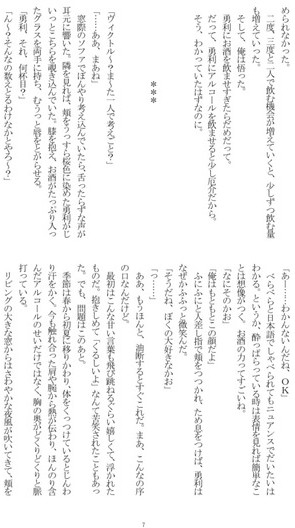 められなかった。
二度、三度と二人で飲む機会が増えていくと、少しずつ飲む量
も増えていった。
そして、俺は悟った。
勇利にお酒を飲ませすぎたらだめだって。
だって、勇利にアルコールを飲ませると少し厄介だから。
そう、わかっていたはずなのに。
***
「ヴィクトル〜？また一人で考えごと？」
「……ああ、まあね」
窓際のソファでぼんやり考え込んでいたら、舌ったらずな声が
耳元に響いた。隣を見れば、頬をうっすら桜色に染めた勇利がじ
いっとこちらを覗き込んでいた。膝を抱え、お酒がたっぷり入っ
たグラスを両手に持ち、むうっと唇をとがらせる。
「勇利、それ、何杯目？」
「ん〜？そんなの数えとるわけなかとやろ〜？」
「あー……わかんないんだね、OK」
べらべらと日本語でしゃべられてもニュアンスでだいたいは
わかる。というか、酔っぱらっている時は表情を見れば簡単なこ
とは想像がつく。お酒の力ってすごいね。
「なにそのかお」
「俺はもともとこの顔だよ」
ふにふにと人差し指で頬をつつかれ、ため息をつけば、勇利は
なぜかふっと微笑んだ。
「そうだね、ぼくの大好きなかお」
「っ……」
ああ、もうほんと、油断するとすぐこれだ。まあ、こんなの序
の口なんだけど。
最初はこんな甘い言葉も飛び跳ねるぐらい嬉しくて、浮かれた
ものだ。抱きしめて「くるしいよ」なんて苦笑されたこともあっ
た。でも、問題はこのあと。
季節は春から初夏に移りかわり、体をくっつけているとじんわ
り汗をかく。今も触れ合った肩や腕から熱が伝わり、ほんのり含
んだアルコールのせいだけではなく、胸の奥がどくりどくりと脈
打っている。
リビングの大きな窓からはさわやかな夜風が吹いてきて、頬を
7